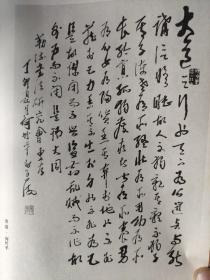 大道之行也天下為公選賢與能
講信修睦故人不獨親其親不獨子
其子使老有所終壯有所用幼有所
長矜寡孤獨廢疾者皆有所養男
有分女有歸貨惡其棄於地也不必
藏於己力惡其不出於身也不必為己
是故謀閉而不興盜竊亂賊而不作故
外戶而不閉是謂大同
書法研究會
丁卯